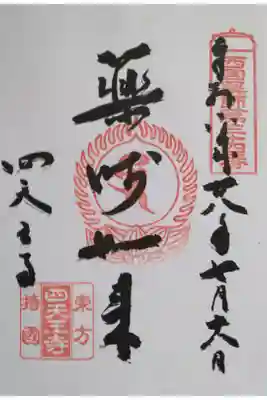 西国薬師第十六番霊場
平成廿八年七月十六日
藥師如来
四天王寺
東方
四天王寺
持国